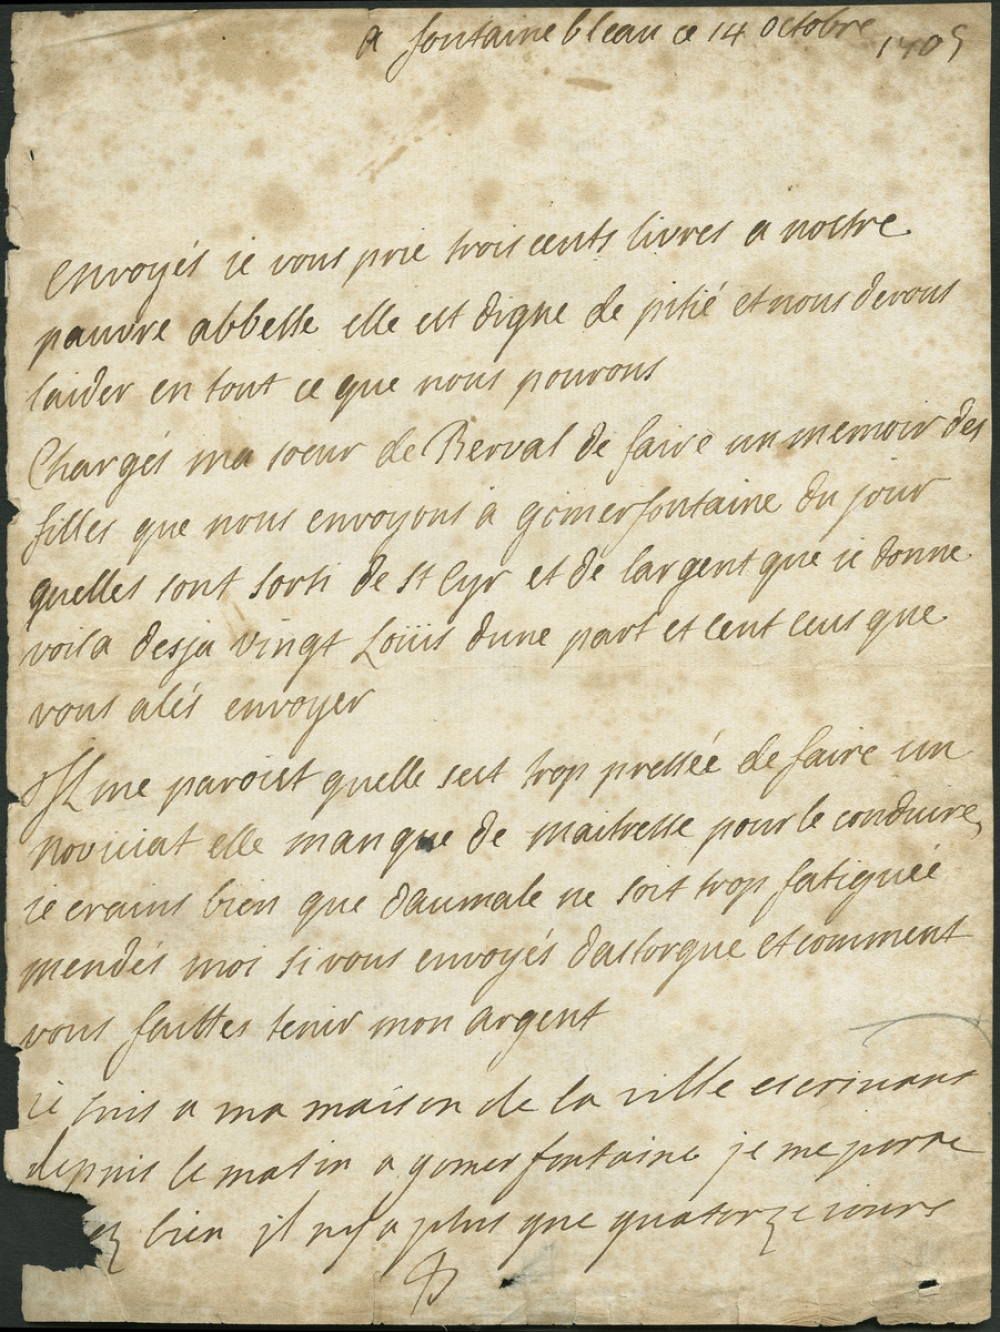 a fontainebleau ce 14 octobre 1705
envoyés ie vous prie trois cents livres a nostre
pauvre abbesse elle est digne de pitié et nous devons
laider en tout ce que nous pouvons
Chargés ma soeur de Berval de faire un memoir des
filles que nous envoyons a gomerfontaine du jour
quelles sont sorti de st Cyr et de largent que ie donne
voila desja vingt Loüis dune part et cent ecus que
vous alés envoyer
Il me paroist quelle sest trop pressée de faire un
noviciat elle manque de maitresse pour le conduire,
ie crains bien que daumale ne soit trop fatiguée
mendés moi si vous envoyés dastorgue et comment
vous faittes tenir mon argent
ie suis a ma maison de la ville escrivant
depuis le matin a gomerfontaine je me porte
bien il ny a plus que quatorze iours